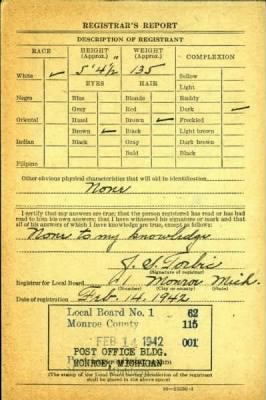 REGISTRAR'S REPORT
DESCRIPTION OF REGISTRANT
RACE HEIGHT (Approx.) WEIGHT (Approx.) COMPLEXION
White ✓ 5' 4½ 135 Sallow
EYES HAIR Light
Negro Blue Blonde Ruddy
Gray Red Dark ✓
Oriental Hazel Brown ✓ Freckled
Brown ✓ Black Light brown
Indian Black Gray Dark brown
Bald Black
Filipino
Other obvious physical characteristics that will aid in identification
None
I certify that my answers are true; that the person registered has read or has had
read to him his own answers; that I have witnessed his signature or mark and that
all of his answers of which I have knowledge are true, except as follows:
None to my knowledge
(Signature of registrar)
Registrar for Local Board 1 Monroe Mich.
(Number) (City or county) (State)
Date of registration Feb. 14, 1942
Local Board No. 1 62
Monroe County 115
FEB 14 1942 001
POST OFFICE BLDG.
MONROE, MICHIGAN
(The stamp of the Local Board having jurisdiction of the registrant
shall be placed in the above space)